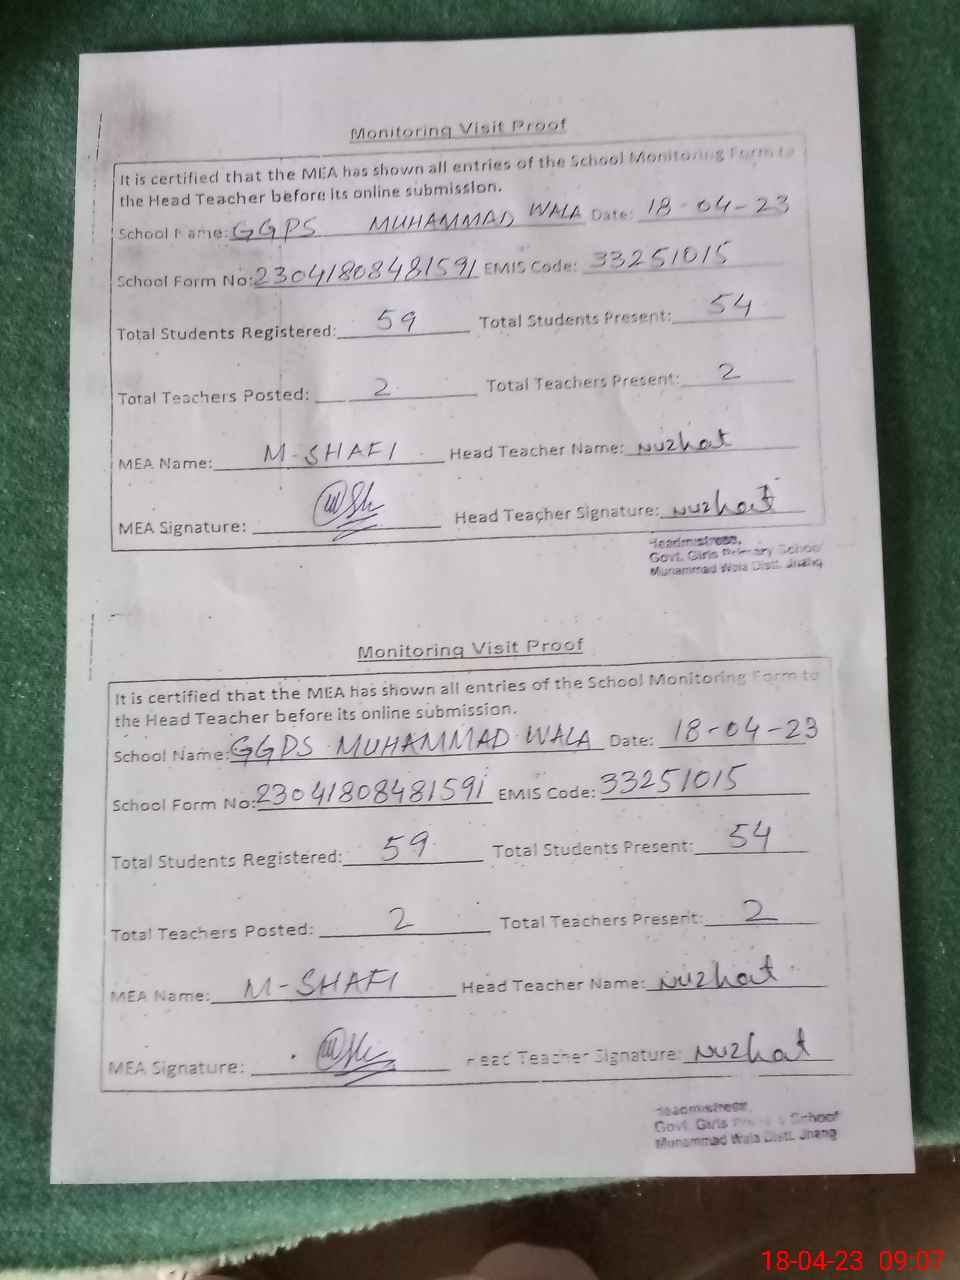 Monitoring Visit Proof
It is certified that the MEA has shown all entries of the School Monitoring Form to
the Head Teacher before its online submission.
School Name: GGPS MUHAMMAD WALA Date: 18-04-23
School Form No: 23041808481591 EMIS Code: 33251015
Total Students Registered: 59 Total Students Present: 54
Total Teachers Posted: 2 Total Teachers Present: 2
MEA Name: M-SHAFI Head Teacher Name: Nuzhat
MEA Signature: Head Teacher Signature: Nuzhat
Headmistress,
Govt. Girls Primary School
Muhammad Wala Distt. Jhang
Monitoring Visit Proof
It is certified that the MEA has shown all entries of the School Monitoring Form to
the Head Teacher before its online submission.
School Name: GGPS MUHAMMAD WALA Date: 18-04-23
School Form No: 23041808481591 EMIS Code: 33251015
Total Students Registered: 59 Total Students Present: 54
Total Teachers Posted: 2 Total Teachers Present: 2
MEA Name: M-SHAFI Head Teacher Name: Nuzhat
MEA Signature: Head Teacher Signature: Nuzhat
Headmistress,
Govt. Girls Primary School
Muhammad Wala Distt. Jhang
18-04-23 09:07